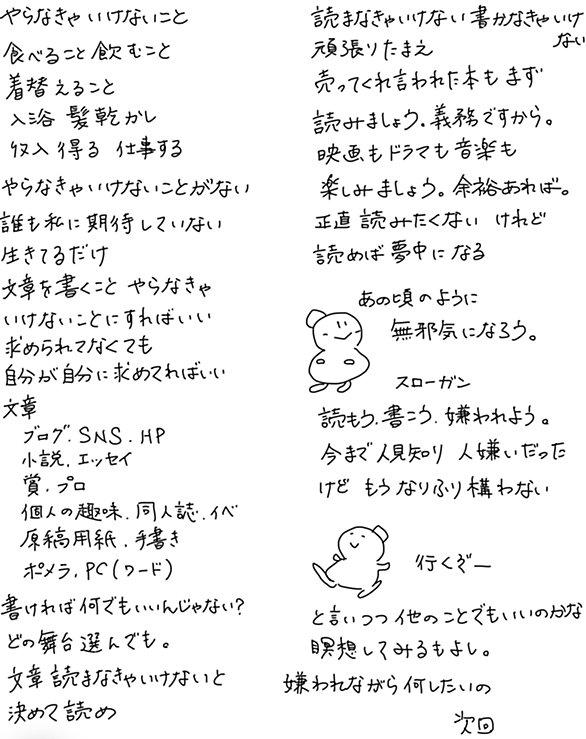 やらなきゃいけないこと
食べること 飲むこと
着替えること
入浴 髪乾かし
収入得る 仕事する
やらなきゃいけないことがない
誰も私に期待していない
生きてるだけ
文章を書くこと やらなきゃ
いけないことにすればいい
求められてなくても
自分が自分に求めてればいい
文章
ブログ.SNS.HP
小説.エッセイ
賞.プロ
個人の趣味.同人誌.イベ
原稿用紙.手書き
ポメラ.PC(ワード)
書ければ何でもいいんじゃない?
どの舞台選んでも。
文章読まなきゃいけないと
決めて読め
読まなきゃいけない書かなきゃいけ
ない
頑張りたまえ
売ってくれ言われた本もまず
読みましょう.義務ですから。
映画もドラマも音楽も
楽しみましょう。余裕あれば。
正直読みたくない けれど
読めば夢中になる
あの頃のように
無邪気になろう。
スローガン
読もう.書こう.嫌われよう。
今まで人見知り 人嫌いだった
けど もうなりふり構わない
行くぞー
と言いつつ他のことでもいいのかな
瞑想してみるもよし。
嫌われながら何したいの
次回